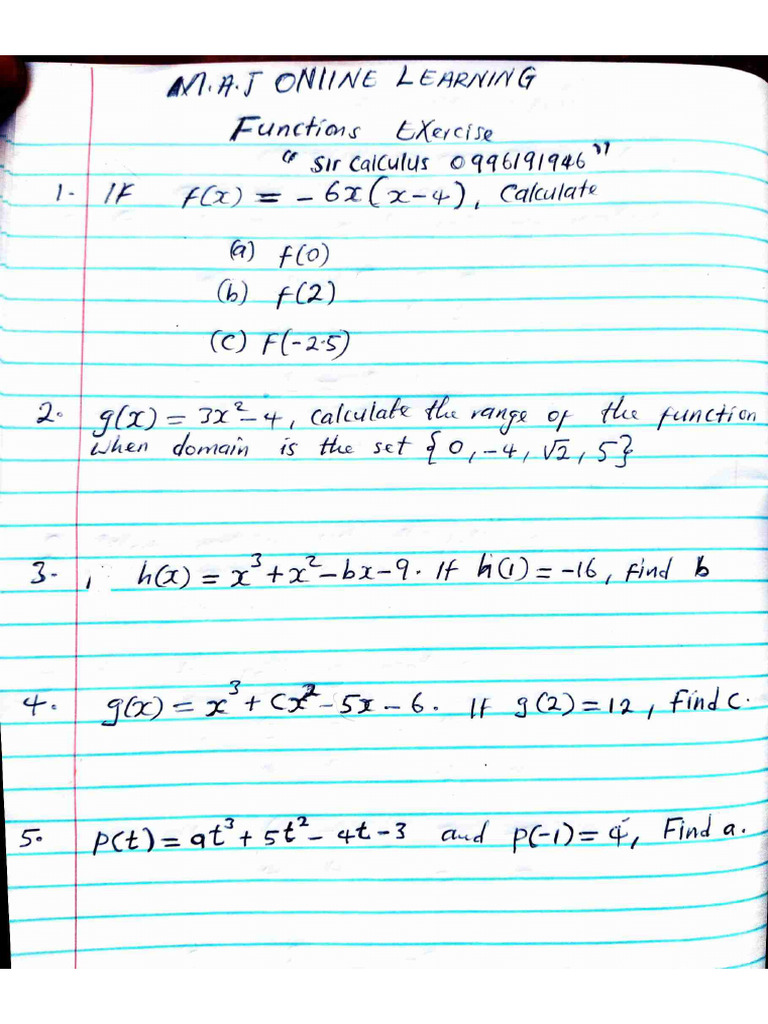 M.A.J ONlINE LEARNING
Functions Exercise
" Sir Calculus 0996191946 "
1. If f(x) = - 6x(x-4), Calculate
(a) f(0)
(b) f(2)
(c) F(-2.5)
2. g(x) = 3x²-4, calculate the range of the function
when domain is the set {0,-4, √2, 5}
3. h(x) = x³+x²-bx-9. If h(1) = -16, find b
4. g(x) = x³ + Cx² - 5x - 6. If g(2) = 12, find C.
5. P(t) = at³ + 5t² - 4t - 3 and p(-1) = 4, Find a.